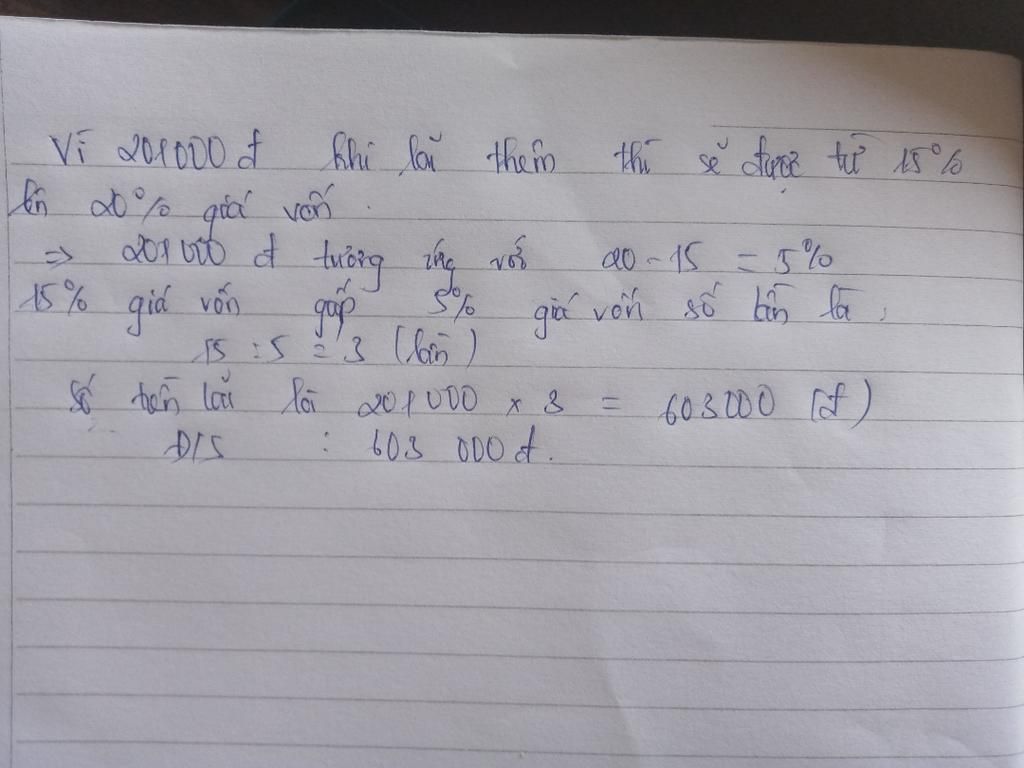 Vì 201000 đ khi lãi thêm thì sẽ được từ 15%
lên 20% giá vốn.
=> 201000 đ tương ứng với 20 - 15 = 5%
15% giá vốn gấp 5% giá vốn số lần là :
15 : 5 = 3 (lần)
Số tiền lãi là 201000 x 3 = 603000 (đ)
Đ/S : 603 000 đ.